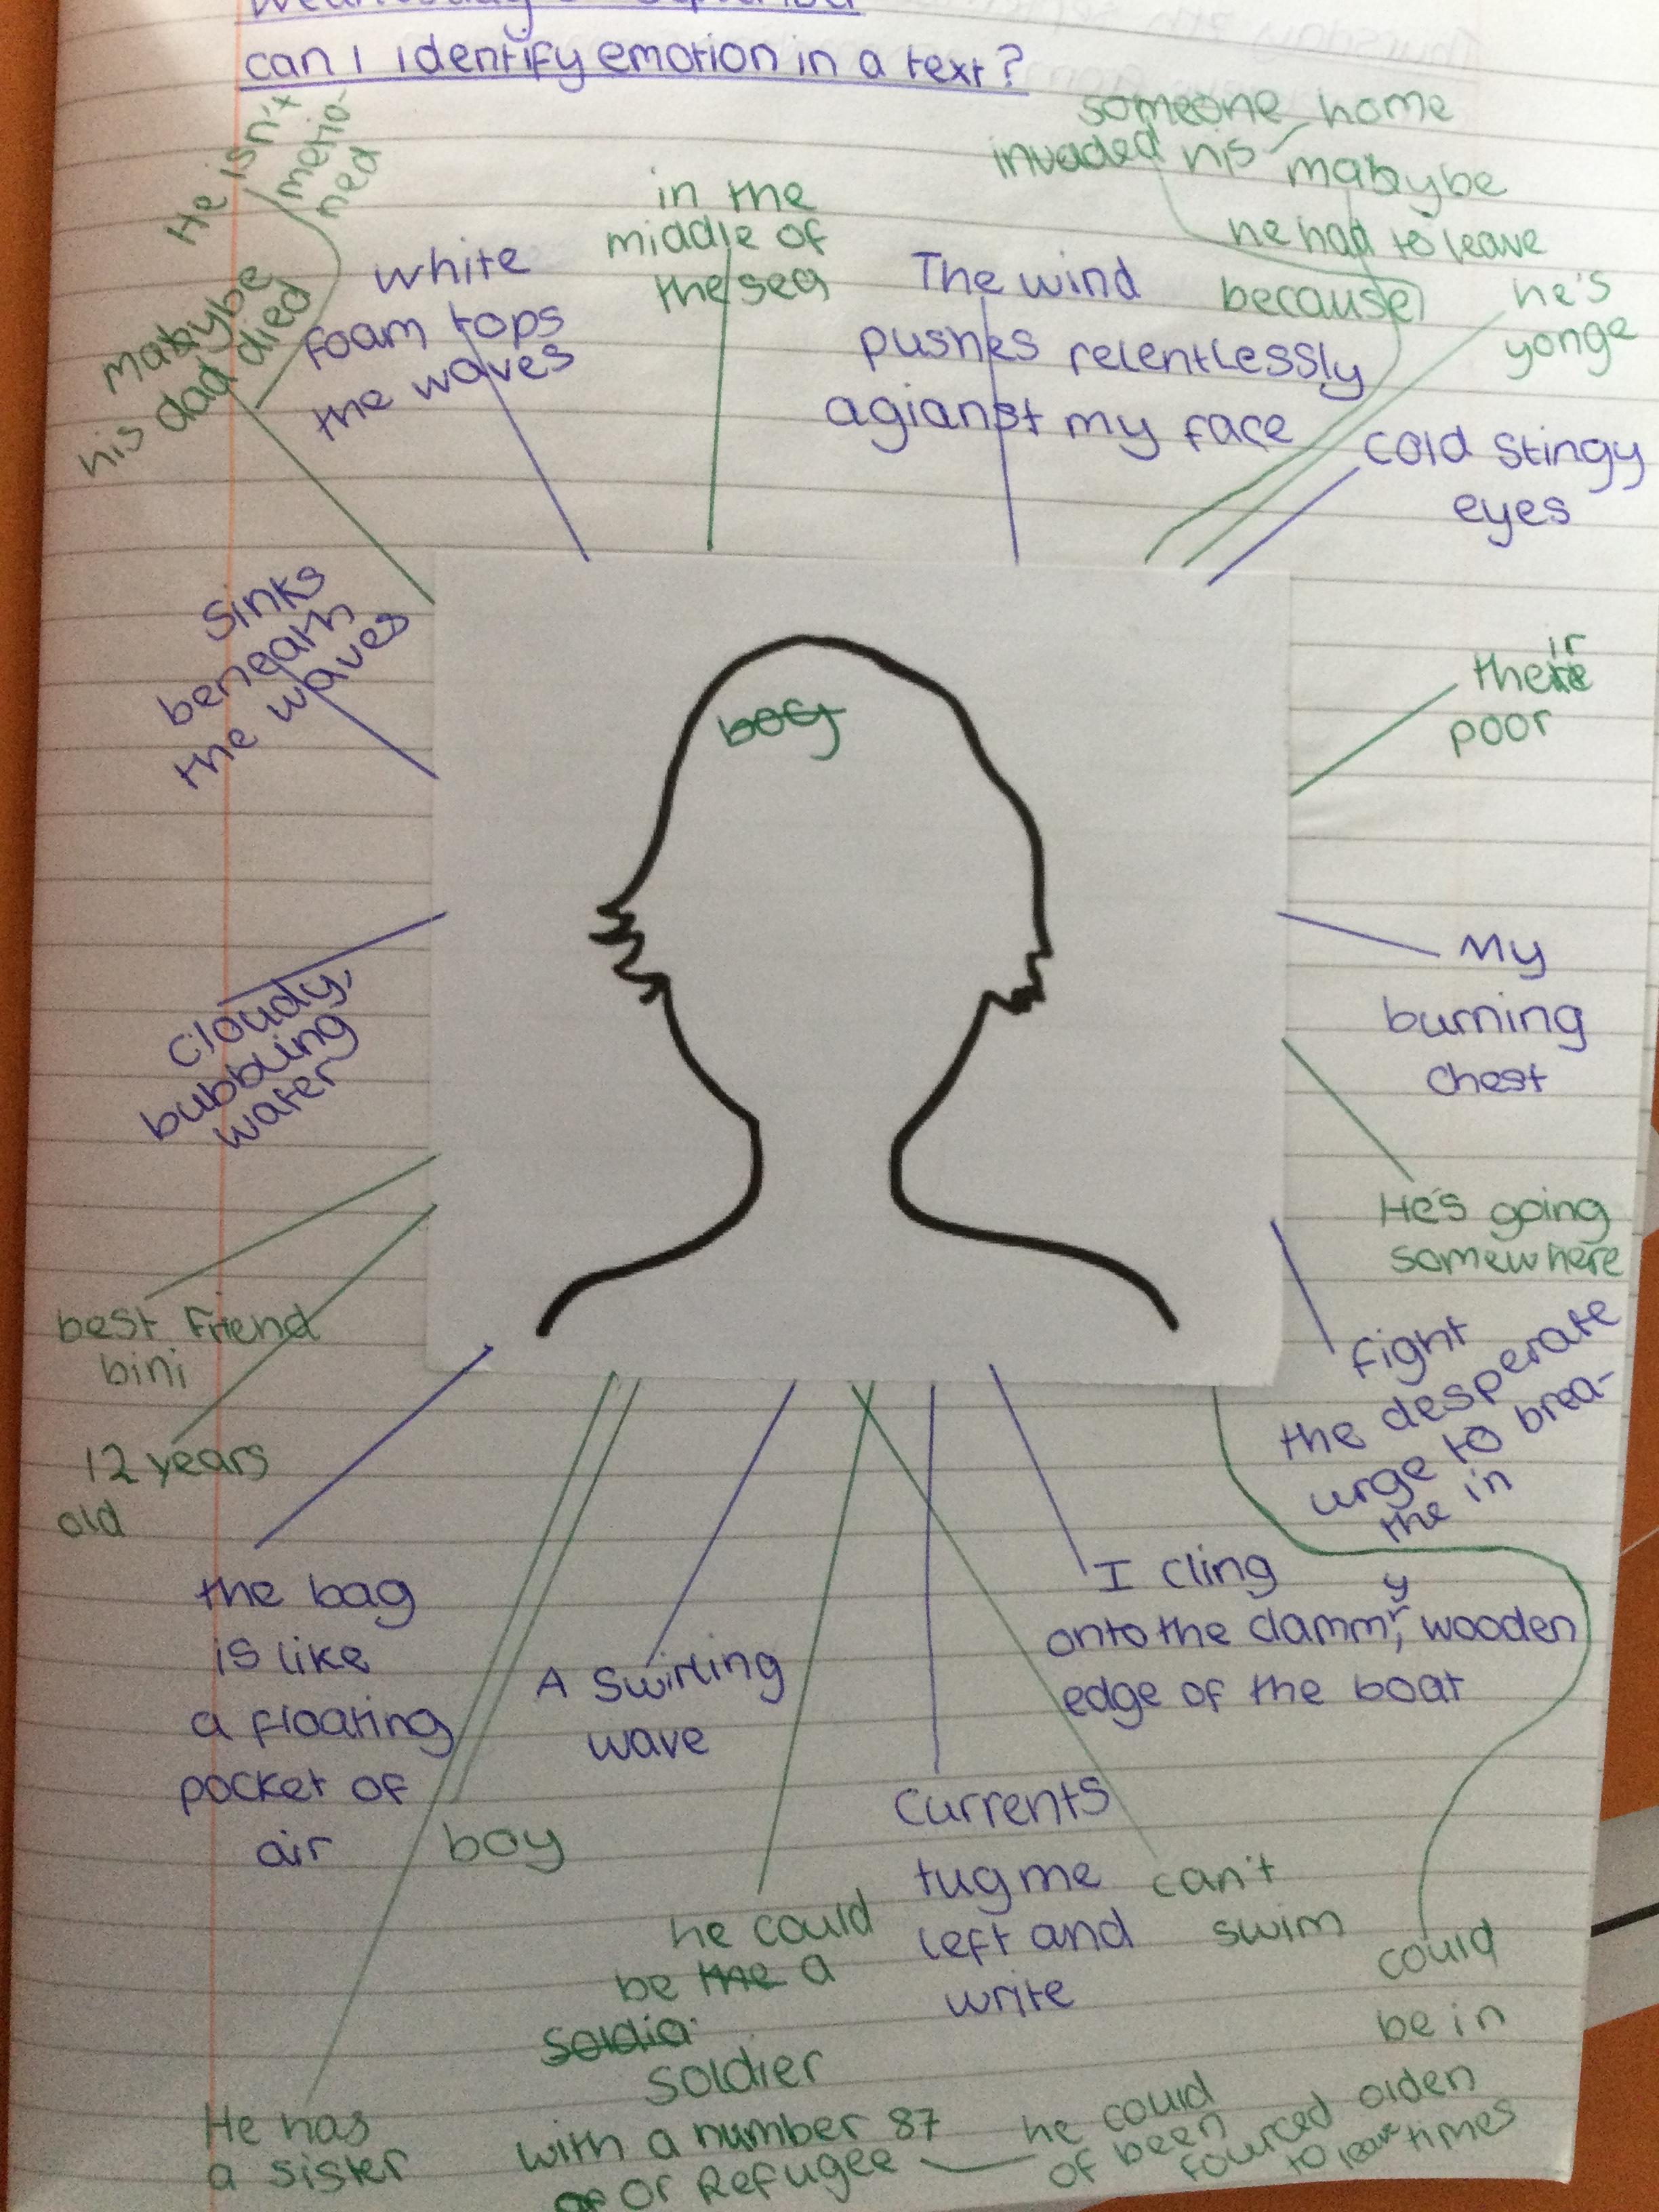 Wednesday September
can I identify emotion in a text?
He isn't
metio-
ned
mabybe
his dad died
white
foam tops
the waves
in the
middle of
the sea
The wind
pushes relentlessly
agianst my face
someone home
invaded his
mabybe
he had to leave
because
he's
yonge
cold stingy
eyes
sinks
beneath
the waves
boy
their
poor
cloudy,
bubbling
water
My
burning
chest
He's going
somewhere
best friend
bini
12 years
old
fight
the desperate
urge to brea-
the in
the bag
is like
a floating
pocket of
air
boy
A swirling
wave
I cling
onto the clammy, wooden
edge of the boat
currents
tug me
left and
write
can't
swim
he could
be the a
soldia
soldier
with a number 87
or or Refugee
he could
of been
fourced
to leave
could
be in
olden
times
He has
a sister